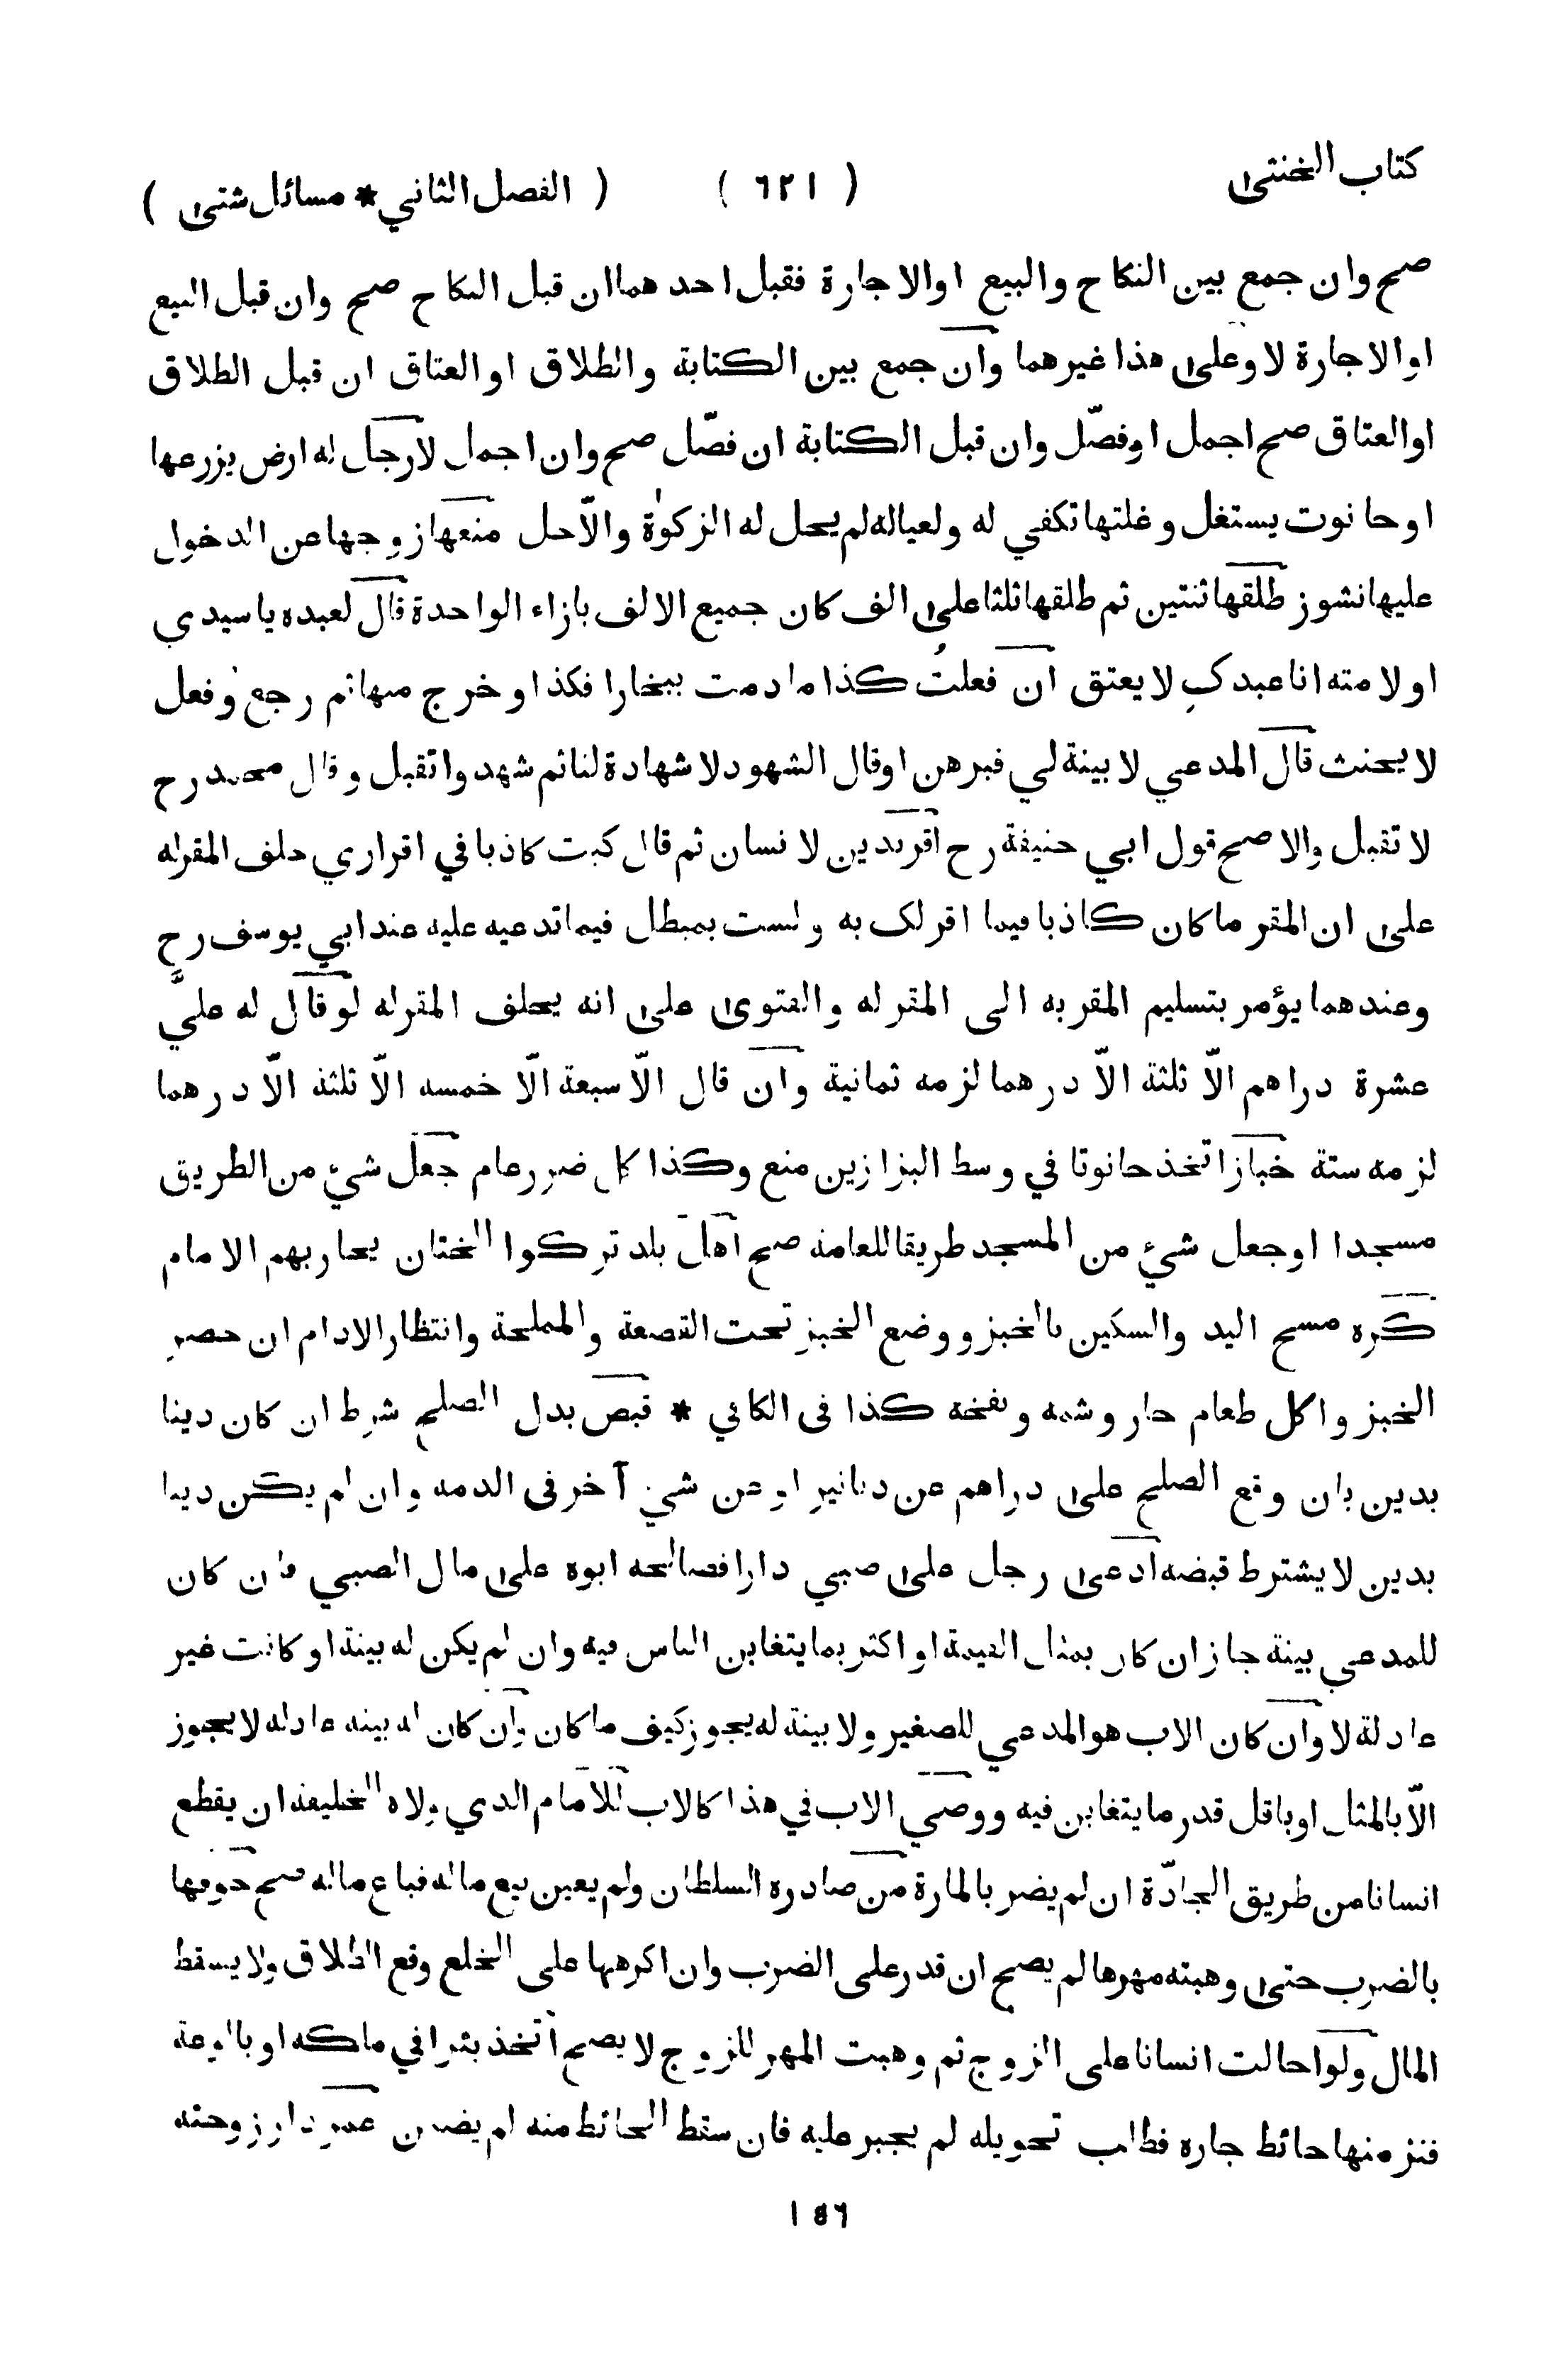 كتاب الخنثى ( ٦٢١ ) ( الفصل الثاني * مسائل شتى )
صح وان جمع بين النكاح والبيع اوالاجارة فقبل احدهما ان قبل النكاح صح وان قبل البيع
اوالاجارة لا وعلى هذا غيرهما وان جمع بين الكتابة والطلاق اوالعتاق ان قبل الطلاق
اوالعتاق صح اجمل اوفصّل وان قبل الكتابة ان فصّل صح وان اجمل لا رجل له ارض يزرعها
اوحانوت يستغل وغلتها تكفي له ولعياله لم يحل له الزكوٰة والّا حل منعها زوجها عن الدخول
عليها نشوز طلقها ثنتين ثم طلقها ثلثا على الف كان جميع الالف بازاء الواحدة قال لعبده يا سيدي
اولامته انا عبدكِ لا يعتق ان فعلتُ كذا ما دمت ببخارا فكذا وخرج منها ثم رجع وفعل
لا يحنث قال المدعي لا بينة لي فبرهن اوقال الشهود لا شهادة لنا ثم شهدوا تقبل وقال محمد رح
لا تقبل والاصح قول ابي حنيفة رح اقر بدين لانسان ثم قال كنت كاذبا في اقراري حلف المقرله
على ان المقر ما كان كاذبا فيما اقر لک به ولست بمبطل فيما تدعيه عليه عند ابي يوسف رح
وعندهما يؤمر بتسليم المقر به الى المقر له والفتوى على انه يحلف المقرله لو قال له عليَّ
عشرة دراهم الّا ثلثة الّا درهما لزمه ثمانية وان قال الّا سبعة الّا خمسه الّا ثلثة الّا درهما
لزمه ستة خباز اتخذ حانوتا في وسط البزازين منع وكذا كل ضرر عام جعل شيئ من الطريق
مسجدا اوجعل شيئ من المسجد طريقا للعامة صح اهل بلد تركوا الختان يحاربهم الامام
كره مسح اليد والسكين بالخبز ووضع الخبز تحت القصعة والمملحة وانتظار الادام ان حضر
الخبز واكل طعام حار وشمه ونفخه كذا فى الكافي * قبض بدل الصلح شرط ان كان دينا
بدين بان وقع الصلح على دراهم عن دنانير اوعن شيئ آخر فى الذمه وان لم يكن دينا
بدين لا يشترط قبضه ادعى رجل على صبي دارا فصالحه ابوه على مال الصبي فان كان
للمدعي بينة جاز ان كان بمثل القيمة او اكثر بما يتغابن الناس فيه وان لم يكن له بينة اوكانت غير
عادلة لا وان كان الاب هو المدعي للصغير ولا بينة له يجوز كيف ما كان وان كان له بينه عادله لا يجوز
الّا بالمثل اوباقل قدر ما يتغابن فيه ووصي الاب في هذا كالاب للامام الذي ولاه الخليفة ان يقطع
انسانا من طريق الجادّة ان لم يضر بالمارة من صادره السلطان ولم يعين بيع ماله فباع ماله صح خوفها
بالضرب حتى وهبته مهرها لم يصح ان قدر على الضرب وان اكرهها على الخلع وقع الطلاق ولا يسقط
المال ولو احالت انسانا على الزوج ثم وهبت المهر للزوج لا يصح اتخذ بئرا في ملكه اوبالوعة
فنز منها حائط جاره فطلب تحويله لم يجبر عليه فان سقط الحائط منه لم يضمن عمر دار زوجته
١٥٦